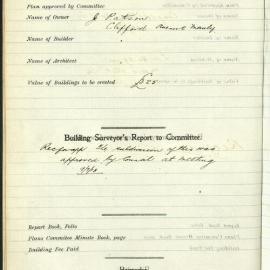 Plan approved by Committee
Name of Owner J Patson
Clifford Avenue Manly
Name of Builder
Name of Architect
Value of Buildings to be erected £
Building Surveyor's Report to Committee:
subdivision of this was
approved by Council at meeting
Report Book, Folio
Plans Committee Minute Book, page
Building Fee Paid